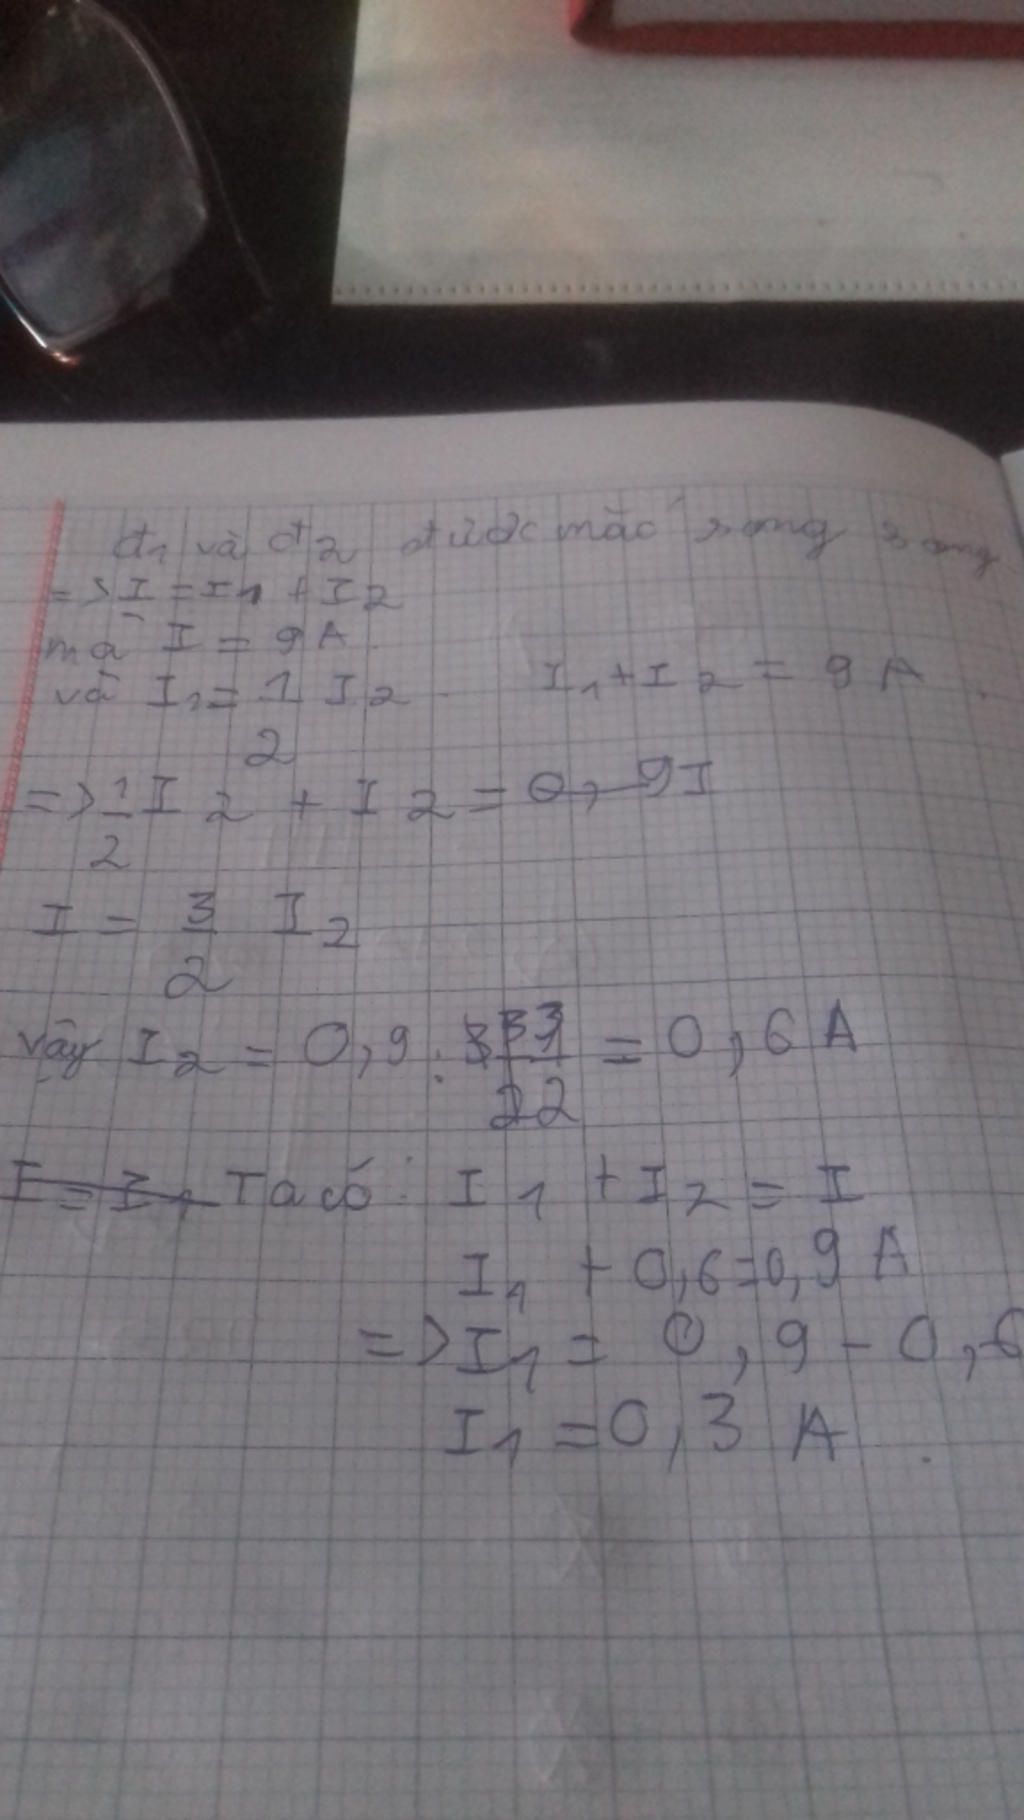 đ1 và đ2 được mắc song song
=> I = I1 + I2
mà I = 9A
và I1 = 1/2 I2 I1 + I2 = 9A
=> 1/2 I2 + I2 = 0,9 I
I = 3/2 I2
vậy I2 = 0,9 : 3/2 = 0,6 A
I = I1 Ta có: I1 + I2 = I
I1 + 0,6 = 0,9 A
=> I1 = 0,9 - 0,6
I1 = 0,3 A.